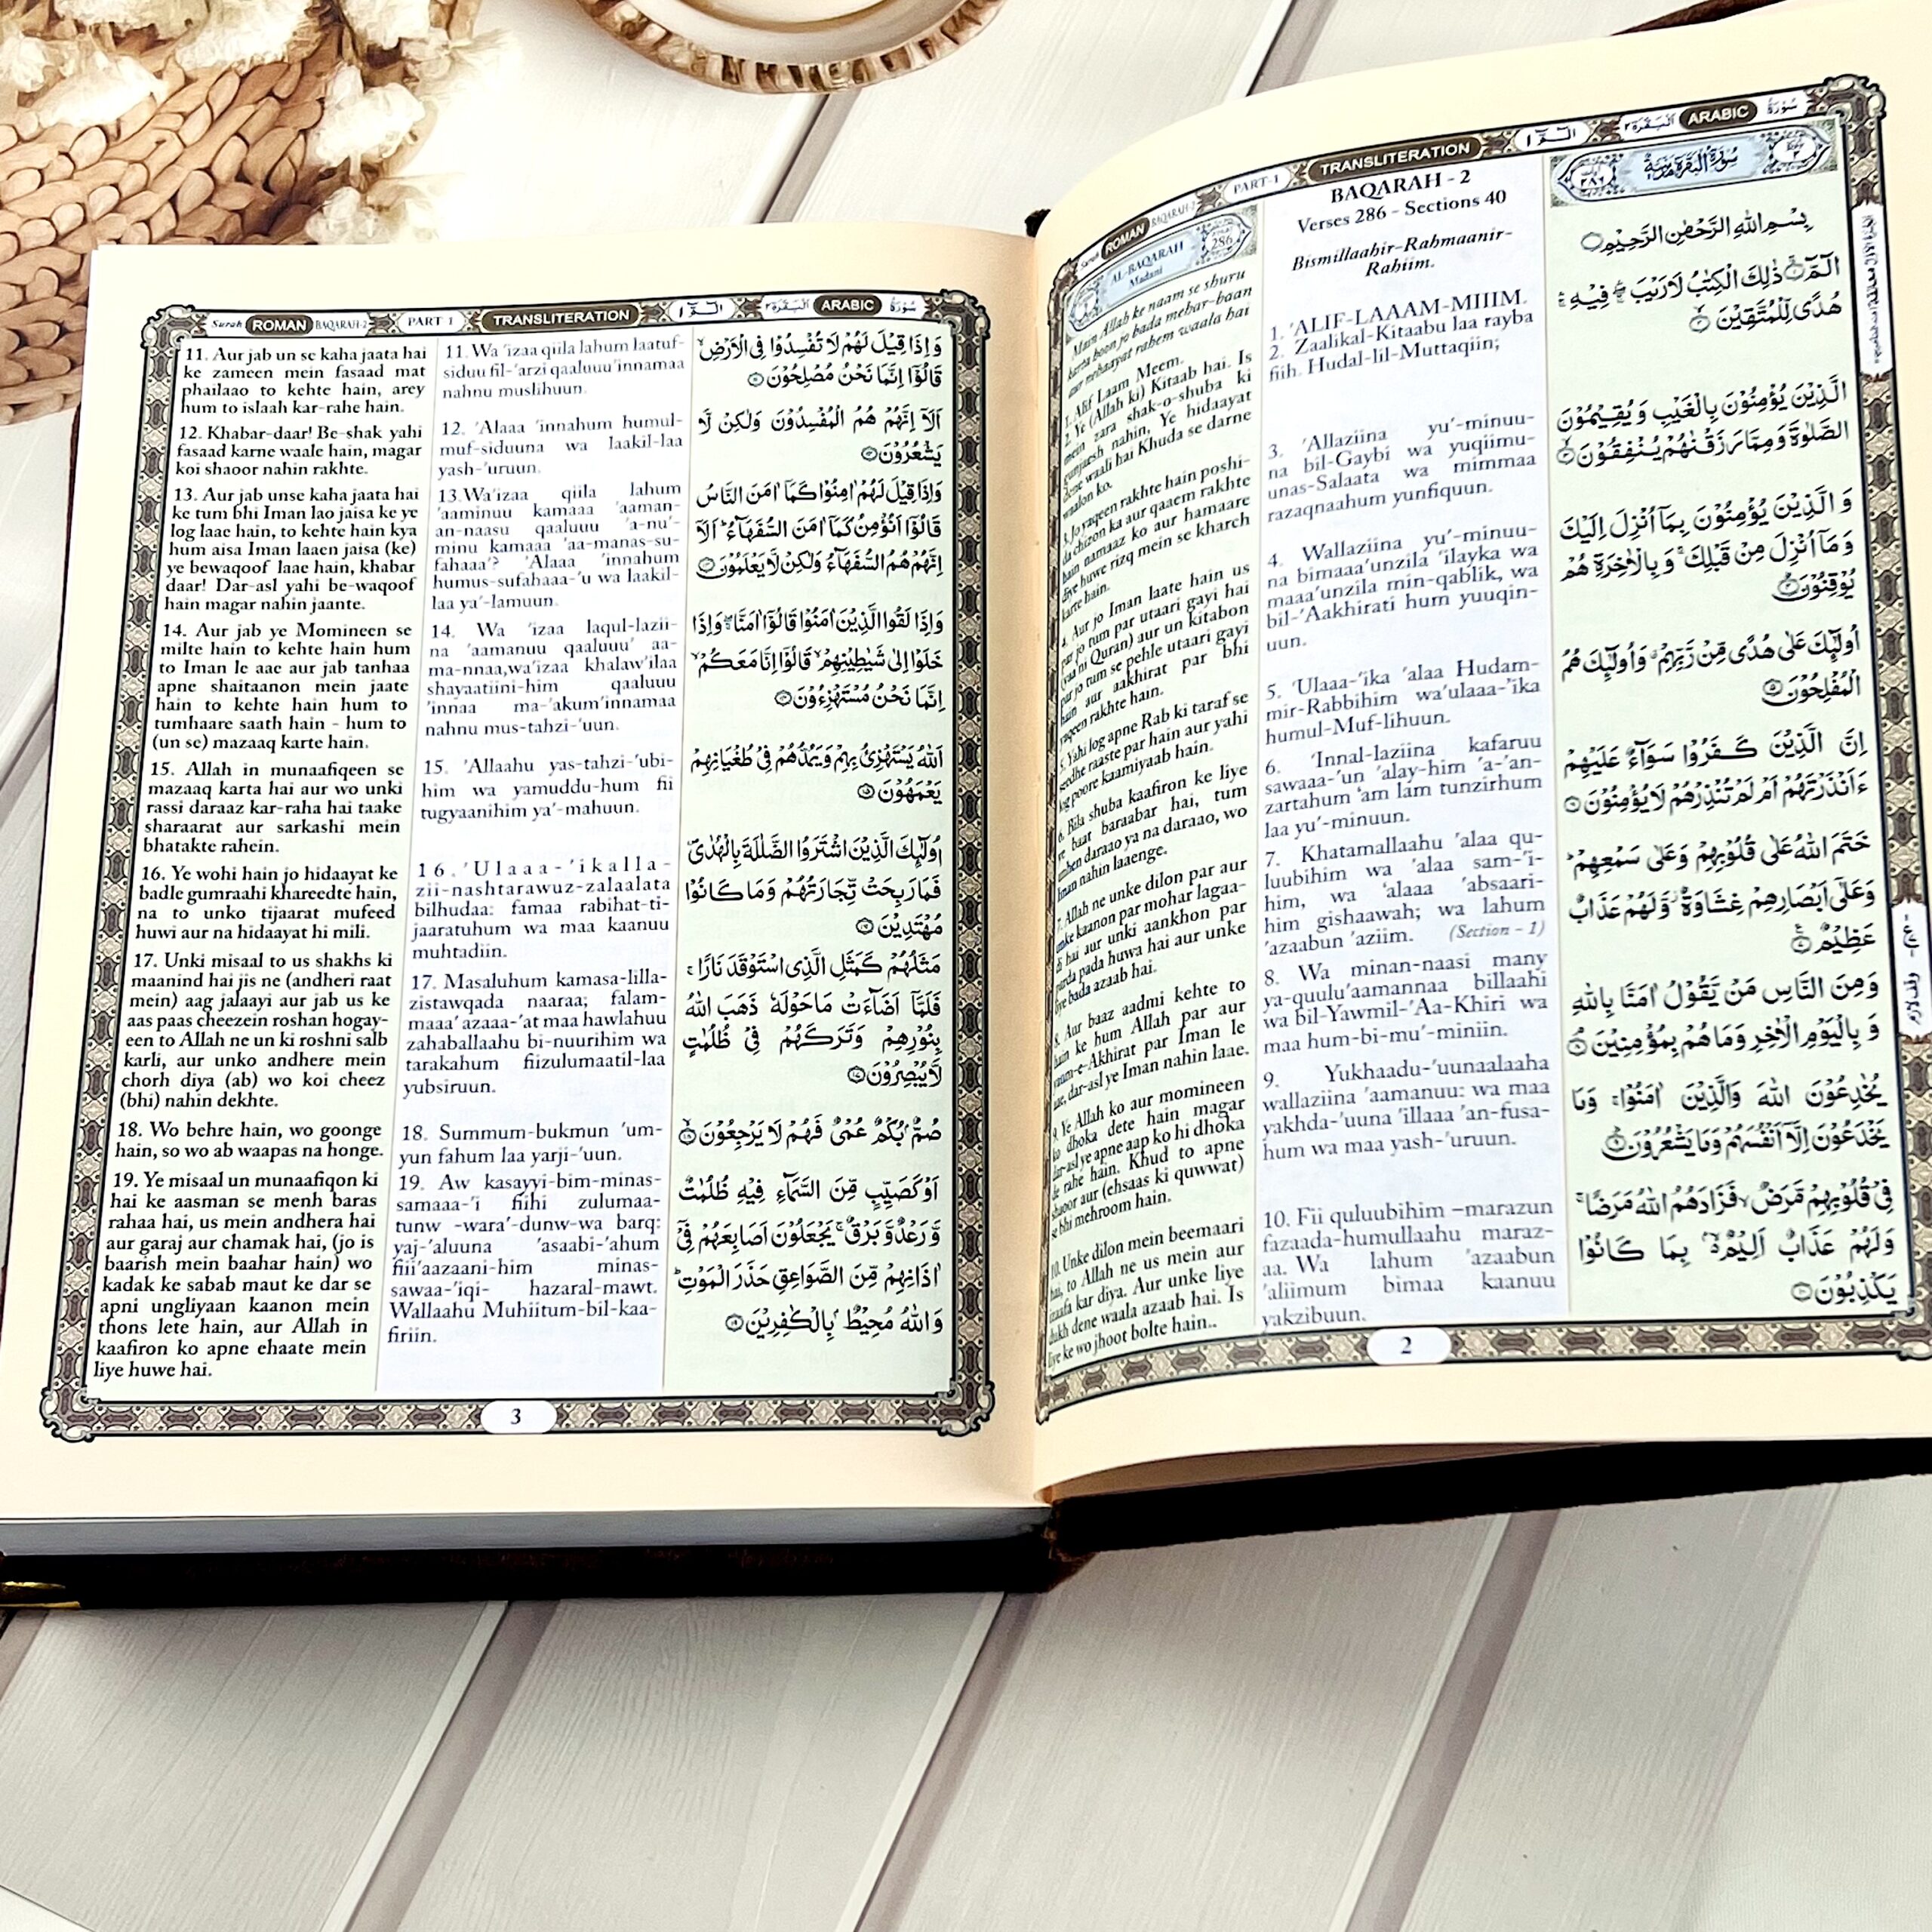 سُوْرَةُ ARABIC اَلْبَقَرَة ٢ الٓمّٓ ١ TRANSLITERATION PART-1 BAQARAH-2 ROMAN Surah
AL-BAQARAH
Madani
286
Main Allah ke naam se shuru
karta hoon jo bada mehar-baan
aur nehaayat rahem waala hai
1. Alif Laam Meem.
2. Ye (Allah ki) Kitaab hai. Is
mein zara shak-o-shuba ki
gunjaesh nahin, Ye hidaayat
dene waali hai Khuda se darne
waalon ko.
3. Jo yaqeen rakhte hain poshi-
da chizon ka aur qaaem rakhte
hain namaaz ko aur hamaare
diye huwe rizq mein se kharch
karte hain.
4. Aur jo Iman laate hain us
par jo tum par utaari gayi hai
(yaani Quran) aur un kitabon
par jo tum se pehle utaari gayi
hain aur aakhirat par bhi
yaqeen rakhte hain.
5. Yahi log apne Rab ki taraf se
seedhe raaste par hain aur yahi
log poore kaamiyaab hain.
6. Bila shuba kaafiron ke liye
ye baat baraabar hai, tum
unhen daraao ya na daraao, wo
Iman nahin laaenge.
7. Allah ne unke dilon par aur
unke kaanon par mohar lagaa-
di hai aur unki aankhon par
parda pada huwa hai aur unke
liye bada azaab hai.
8. Aur baaz aadmi kehte to
hain ke hum Allah par aur
yaum-e-Akhirat par Iman le
aae, dar-asl ye Iman nahin laae.
9. Ye Allah ko aur momineen
ko dhoka dete hain magar
dar-asl ye apne aap ko hi dhoka
de rahe hain. Khud to apne
shaoor aur (ehsaas ki quwwat)
se bhi mehroom hain.
10. Unke dilon mein beemaari
hai, to Allah ne us mein aur
izaafa kar diya. Aur unke liye
dukh dene waala azaab hai. Is
liye ke wo jhoot bolte hain..
BAQARAH - 2
Verses 286 - Sections 40
Bismillaahir-Rahmaanir-
Rahiim.
1. 'ALIF-LAAAM-MIIIM.
2. Zaalikal-Kitaabu laa rayba
fiih. Hudal-lil-Muttaqiin;
3. 'Allaziina yu'-minuu-
na bil-Gaybi wa yuqiimu-
unas-Salaata wa mimmaa
razaqnaahum yunfiquun.
4. Wallaziina yu'-minuu-
na bimaaa'unzila 'ilayka wa
maaa'unzila min-qablik, wa
bil-'Aakhirati hum yuuqin-
uun.
5. 'Ulaaa-'ika 'alaa Hudam-
mir-Rabbihim wa'ulaaa-'ika
humul-Muf-lihuun.
6. 'Innal-laziina kafaruu
sawaaa-'un 'alay-him 'a-'an-
zartahum 'am lam tunzirhum
laa yu'-minuun.
7. Khatamallaahu 'alaa qu-
luubihim wa 'alaa sam-'i-
him, wa 'alaaa 'absaari-
him gishaawah; wa lahum
'azaabun 'aziim. (Section - 1)
8. Wa minan-naasi many
ya-quulu'aamannaa billaahi
wa bil-Yawmil-'Aa-Khiri wa
maa hum-bi-mu'-miniin.
9. Yukhaadu-'uunaalaaha
wallaziina 'aamanuu: wa maa
yakhda-'uuna 'illaaa 'an-fusa-
hum wa maa yash-'uruun.
10. Fii quluubihim –marazun
fazaada-humullaahu maraz-
aa. Wa lahum 'azaabun
'aliimum bimaa kaanuu
yakzibuun.
سُوْرَةُ الْبَقَرَةِ مَدَنِيَّةٌ
بِسْمِ اللّٰهِ الرَّحْمٰنِ الرَّحِيْمِ
الٓمّٓ ۚ ذٰلِكَ الْكِتٰبُ لَا رَيْبَ ۛ فِيْهِ ۛ
هُدًى لِّلْمُتَّقِيْنَ
الَّذِيْنَ يُؤْمِنُوْنَ بِالْغَيْبِ وَ يُقِيْمُوْنَ
الصَّلٰوةَ وَمِمَّا رَزَقْنٰهُمْ يُنْفِقُوْنَ
وَ الَّذِيْنَ يُؤْمِنُوْنَ بِمَاۤ اُنْزِلَ اِلَيْكَ
وَ مَاۤ اُنْزِلَ مِنْ قَبْلِكَ ۚ وَ بِالْاٰخِرَةِ هُمْ
يُوْقِنُوْنَ
اُولٰٓئِكَ عَلٰى هُدًى مِّنْ رَّبِّهِمْ ۗ وَاُولٰٓئِكَ هُمُ
الْمُفْلِحُوْنَ
اِنَّ الَّذِيْنَ كَفَرُوْا سَوَآءٌ عَلَيْهِمْ
ءَاَنْذَرْتَهُمْ اَمْ لَمْ تُنْذِرْهُمْ لَا يُؤْمِنُوْنَ
خَتَمَ اللّٰهُ عَلٰى قُلُوْبِهِمْ وَعَلٰى سَمْعِهِمْ ؕ
وَعَلٰۤى اَبْصَارِهِمْ غِشَاوَةٌ ؗ وَّلَهُمْ عَذَابٌ
عَظِيْمٌ
وَمِنَ النَّاسِ مَنْ يَّقُوْلُ اٰمَنَّا بِاللّٰهِ
وَ بِالْيَوْمِ الْاٰخِرِ وَمَا هُمْ بِمُؤْمِنِيْنَ
يُخٰدِعُوْنَ اللّٰهَ وَالَّذِيْنَ اٰمَنُوْا ۚ وَمَا
يَخْدَعُوْنَ اِلَّاۤ اَنْفُسَهُمْ وَمَا يَشْعُرُوْنَ
فِيْ قُلُوْبِهِمْ مَّرَضٌ ۙ فَزَادَهُمُ اللّٰهُ مَرَضًا ۚ
وَلَهُمْ عَذَابٌ اَلِيْمٌۢ ۙ بِمَا كَانُوْا
يَكْذِبُوْنَ
2
Surah ROMAN BAQARAH-2 PART 1 TRANSLITERATION الٓمّٓ ١ اَلْبَقَرَة ٢ ARABIC سُوْرَةُ
11. Aur jab un se kaha jaata hai
ke zameen mein fasaad mat
phailaao to kehte hain, arey
hum to islaah kar-rahe hain.
12. Khabar-daar! Be-shak yahi
fasaad karne waale hain, magar
koi shaoor nahin rakhte.
13. Aur jab unse kaha jaata hai
ke tum bhi Iman lao jaisa ke ye
log laae hain, to kehte hain kya
hum aisa Iman laaen jaisa (ke)
ye bewaqoof laae hain, khabar
daar! Dar-asl yahi be-waqoof
hain magar nahin jaante.
14. Aur jab ye Momineen se
milte hain to kehte hain hum
to Iman le aae aur jab tanhaa
apne shaitaanon mein jaate
hain to kehte hain hum to
tumhaare saath hain - hum to
(un se) mazaaq karte hain.
15. Allah in munaafiqeen se
mazaaq karta hai aur wo unki
rassi daraaz kar-raha hai taake
sharaarat aur sarkashi mein
bhatakte rahein.
16. Ye wohi hain jo hidaayat ke
badle gumraahi khareedte hain,
na to unko tijaarat mufeed
huwi aur na hidaayat hi mili.
17. Unki misaal to us shakhs ki
maanind hai jis ne (andheri raat
mein) aag jalaayi aur jab us ke
aas paas cheezein roshan hogay-
een to Allah ne un ki roshni salb
karli, aur unko andhere mein
chorh diya (ab) wo koi cheez
(bhi) nahin dekhte.
18. Wo behre hain, wo goonge
hain, so wo ab waapas na honge.
19. Ye misaal un munaafiqon ki
hai ke aasman se menh baras
rahaa hai, us mein andhera hai
aur garaj aur chamak hai, (jo is
baarish mein baahar hain) wo
kadak ke sabab maut ke dar se
apni ungliyaan kaanon mein
thons lete hain, aur Allah in
kaafiron ko apne ehaate mein
liye huwe hai.
11. Wa 'izaa qiila lahum laatuf-
siduu fil-'arzi qaaluuu'innamaa
nahnu muslihuun.
12. 'Alaaa 'innahum humul-
muf-siduuna wa laakil-laa
yash-'uruun.
13.Wa'izaa qiila lahum
'aaminuu kamaaa 'aaman-
an-naasu qaaluuu 'a-nu'-
minu kamaaa 'aa-manas-su-
fahaaa'? 'Alaaa 'innahum
humus-sufahaaa-'u wa laakil-
laa ya'-lamuun.
14. Wa 'izaa laqul-lazii-
na 'aamanuu qaaluuu' aa-
ma-nnaa,wa'izaa khalaw'ilaa
shayaatiini-him qaaluuu
'innaa ma-'akum'innamaa
nahnu mus-tahzi-'uun.
15. 'Allaahu yas-tahzi-'ubi-
him wa yamuddu-hum fii
tugyaanihim ya'-mahuun.
16. 'Ulaaa-'ikalla-
zii-nashtarawuz-zalaalata
bilhudaa: famaa rabihat-ti-
jaaratuhum wa maa kaanuu
muhtadiin.
17. Masaluhum kamasa-lilla-
zistawqada naaraa; falam-
maaa' azaaa-'at maa hawlahuu
zahaballaahu bi-nuurihim wa
tarakahum fiizulumaatil-laa
yubsiruun.
18. Summum-bukmun 'um-
yun fahum laa yarji-'uun.
19. Aw kasayyi-bim-minas-
samaaa-'i fiihi zulumaa-
tunw -wara'-dunw-wa barq:
yaj-'aluuna 'asaabi-'ahum
fiii'aazaani-him minas-
sawaa-'iqi- hazaral-mawt.
Wallaahu Muhiitum-bil-kaa-
firiin.
وَ اِذَا قِيْلَ لَهُمْ لَا تُفْسِدُوْا فِى الْاَرْضِ ۙ
قَالُوْۤا اِنَّمَا نَحْنُ مُصْلِحُوْنَ
اَلَاۤ اِنَّهُمْ هُمُ الْمُفْسِدُوْنَ وَلٰكِنْ لَّا
يَشْعُرُوْنَ
وَاِذَا قِيْلَ لَهُمْ اٰمِنُوْا كَمَاۤ اٰمَنَ النَّاسُ
قَالُوْۤا اَنُؤْمِنُ كَمَاۤ اٰمَنَ السُّفَهَآءُ ؕ اَلَاۤ
اِنَّهُمْ هُمُ السُّفَهَآءُ وَلٰكِنْ لَّا يَعْلَمُوْنَ
وَاِذَا لَقُوا الَّذِيْنَ اٰمَنُوْا قَالُوْۤا اٰمَنَّا ۖۚ وَاِذَا
خَلَوْا اِلٰى شَيٰطِيْنِهِمْ ۙ قَالُوْۤا اِنَّا مَعَكُمْ ۙ
اِنَّمَا نَحْنُ مُسْتَهْزِءُوْنَ
اَللّٰهُ يَسْتَهْزِئُ بِهِمْ وَيَمُدُّهُمْ فِيْ طُغْيَانِهِمْ
يَعْمَهُوْنَ
اُولٰٓئِكَ الَّذِيْنَ اشْتَرَوُا الضَّلٰلَةَ بِالْهُدٰى ۪
فَمَا رَبِحَتْ تِّجَارَتُهُمْ وَمَا كَانُوْا
مُهْتَدِيْنَ
مَثَلُهُمْ كَمَثَلِ الَّذِى اسْتَوْقَدَ نَارًا ۚ
فَلَمَّاۤ اَضَآءَتْ مَا حَوْلَهٗ ذَهَبَ اللّٰهُ
بِنُوْرِهِمْ وَتَرَكَهُمْ فِيْ ظُلُمٰتٍ
لَّا يُبْصِرُوْنَ
صُمٌّۢ بُكْمٌ عُمْىٌ فَهُمْ لَا يَرْجِعُوْنَ
اَوْ كَصَيِّبٍ مِّنَ السَّمَآءِ فِيْهِ ظُلُمٰتٌ
وَّرَعْدٌ وَّبَرْقٌ ۚ يَجْعَلُوْنَ اَصَابِعَهُمْ فِيْۤ
اٰذَانِهِمْ مِّنَ الصَّوَاعِقِ حَذَرَ الْمَوْتِ ؕ
وَ اللّٰهُ مُحِيْطٌۢ بِالْكٰفِرِيْنَ
3